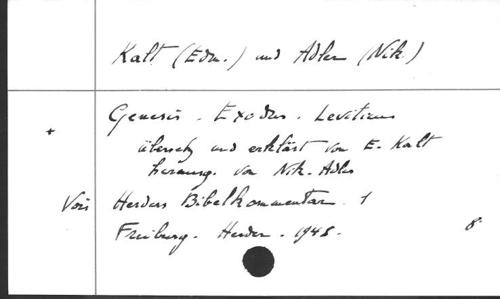 Kalt (Edm.) und Adler (Nik.)
Genesis. Exodus. Leviticus
+ übersetz und erklärt von E. Kalt
herausg. von Nik. Adler
Vois Herders Bibelkommentar. 1
Freiburg. Herder. 1948. 8°